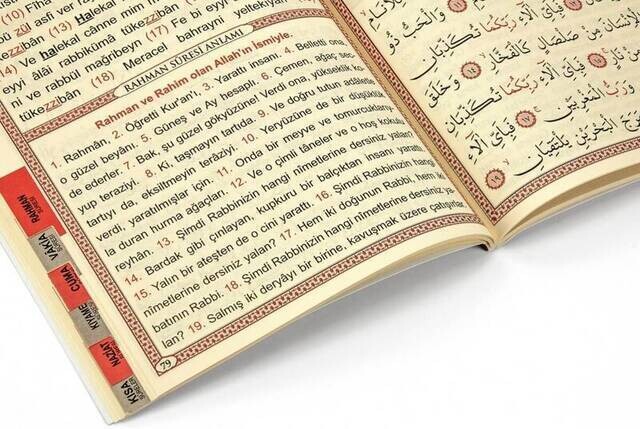 zül asfi ver
bân (13) Halekal
(14) Ve halekal cânne min
eyyi âlâi rabbikümâ tükezzibân (16)
ni ve rabbül mağribeyn (17) Fe bi eyyi
tükezzibân (18) Meracel bahrayni yeltekıyân
RAHMAN SÛRESİ ANLAMI
Rahman ve Rahim olan Allah'ın ismiyle.
1. Rahmân, 2. Öğretti Kur'an'ı. 3. Yarattı insanı. 4. Belletti ona,
o güzel beyânı. 5. Güneş ve Ay hesaplı. 6. Çemen, ağaç sec-
de ederler. 7. Bak, şu güzel gökyüzüne! Verdi ona, yükseklik ko-
yup teraziyi. 8. Ki, taşmayın tartıda. 9. Ve doğru tutun adâletle
tartıyı da, eksiltmeyin terâziyi. 10. Yeryüzüne de bir düşüklük
verdi, yaratılmışlar için. 11. Onda bir meyve ve tomurcuklarıy-
la duran hurma ağaçları. 12. Ve o çimli tâneler ve o hoş kokulu
reyhân. 13. Şimdi Rabbinizin hangi nîmetlerine dersiniz yalan?
14. Bardak gibi çınlayan, kupkuru bir balçıktan insanı yarattı.
15. Yalın bir ateşten de o cini yarattı. 16. Şimdi Rabbinizin hangi
nîmetlerine dersiniz yalan? 17. Hem iki doğunun Rabbi, hem iki
batının Rabbi. 18. Şimdi Rabbinizin hangi nîmetlerine dersiniz ya-
lan? 19. Salmış iki deryâyı bir birine, kavuşmak üzere çatışırlar.
79
RAHMAN
SÛRESİ
VAKIA
SÛRESİ
CUMA
KIYAME
NAZİAT
KISA
SÛRELER
وَالْحَبُّ ذُو
رَبِّكُمَا تُكَذِّبَانِ
مِنْ صَلْصَالٍ كَالْفَخَّارِ ﴿١٤﴾ وَخَلَقَ
﴿١٥﴾ فَبِأَيِّ آلَاءِ رَبِّكُمَا تُكَذِّبَانِ
﴿١٦﴾ وَرَبُّ الْمَغْرِبَيْنِ ﴿١٧﴾ فَبِأَيِّ آلَاءِ
الْبَحْرَيْنِ يَلْتَقِيَانِ ﴿١٩﴾